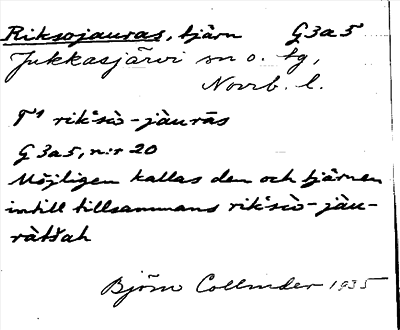 Riksojauras, tjärn G3a5
Jukkasjärvi sn o. tg,
Norrb. l.
T¹ rik:sò-jàurās
G3a5, n:r 20
Möjligen kallas den och tjärnen
intill tillsammans rik:sò-jàu-
Björn Collinder 1935